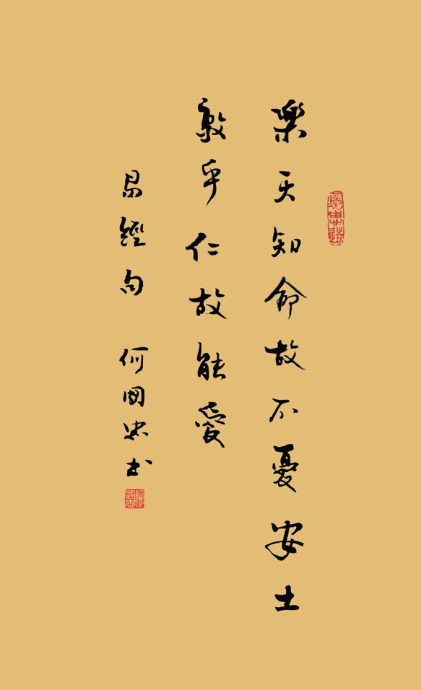 樂天知命故不憂安土
敦乎仁故能愛
易經句 何國忠書